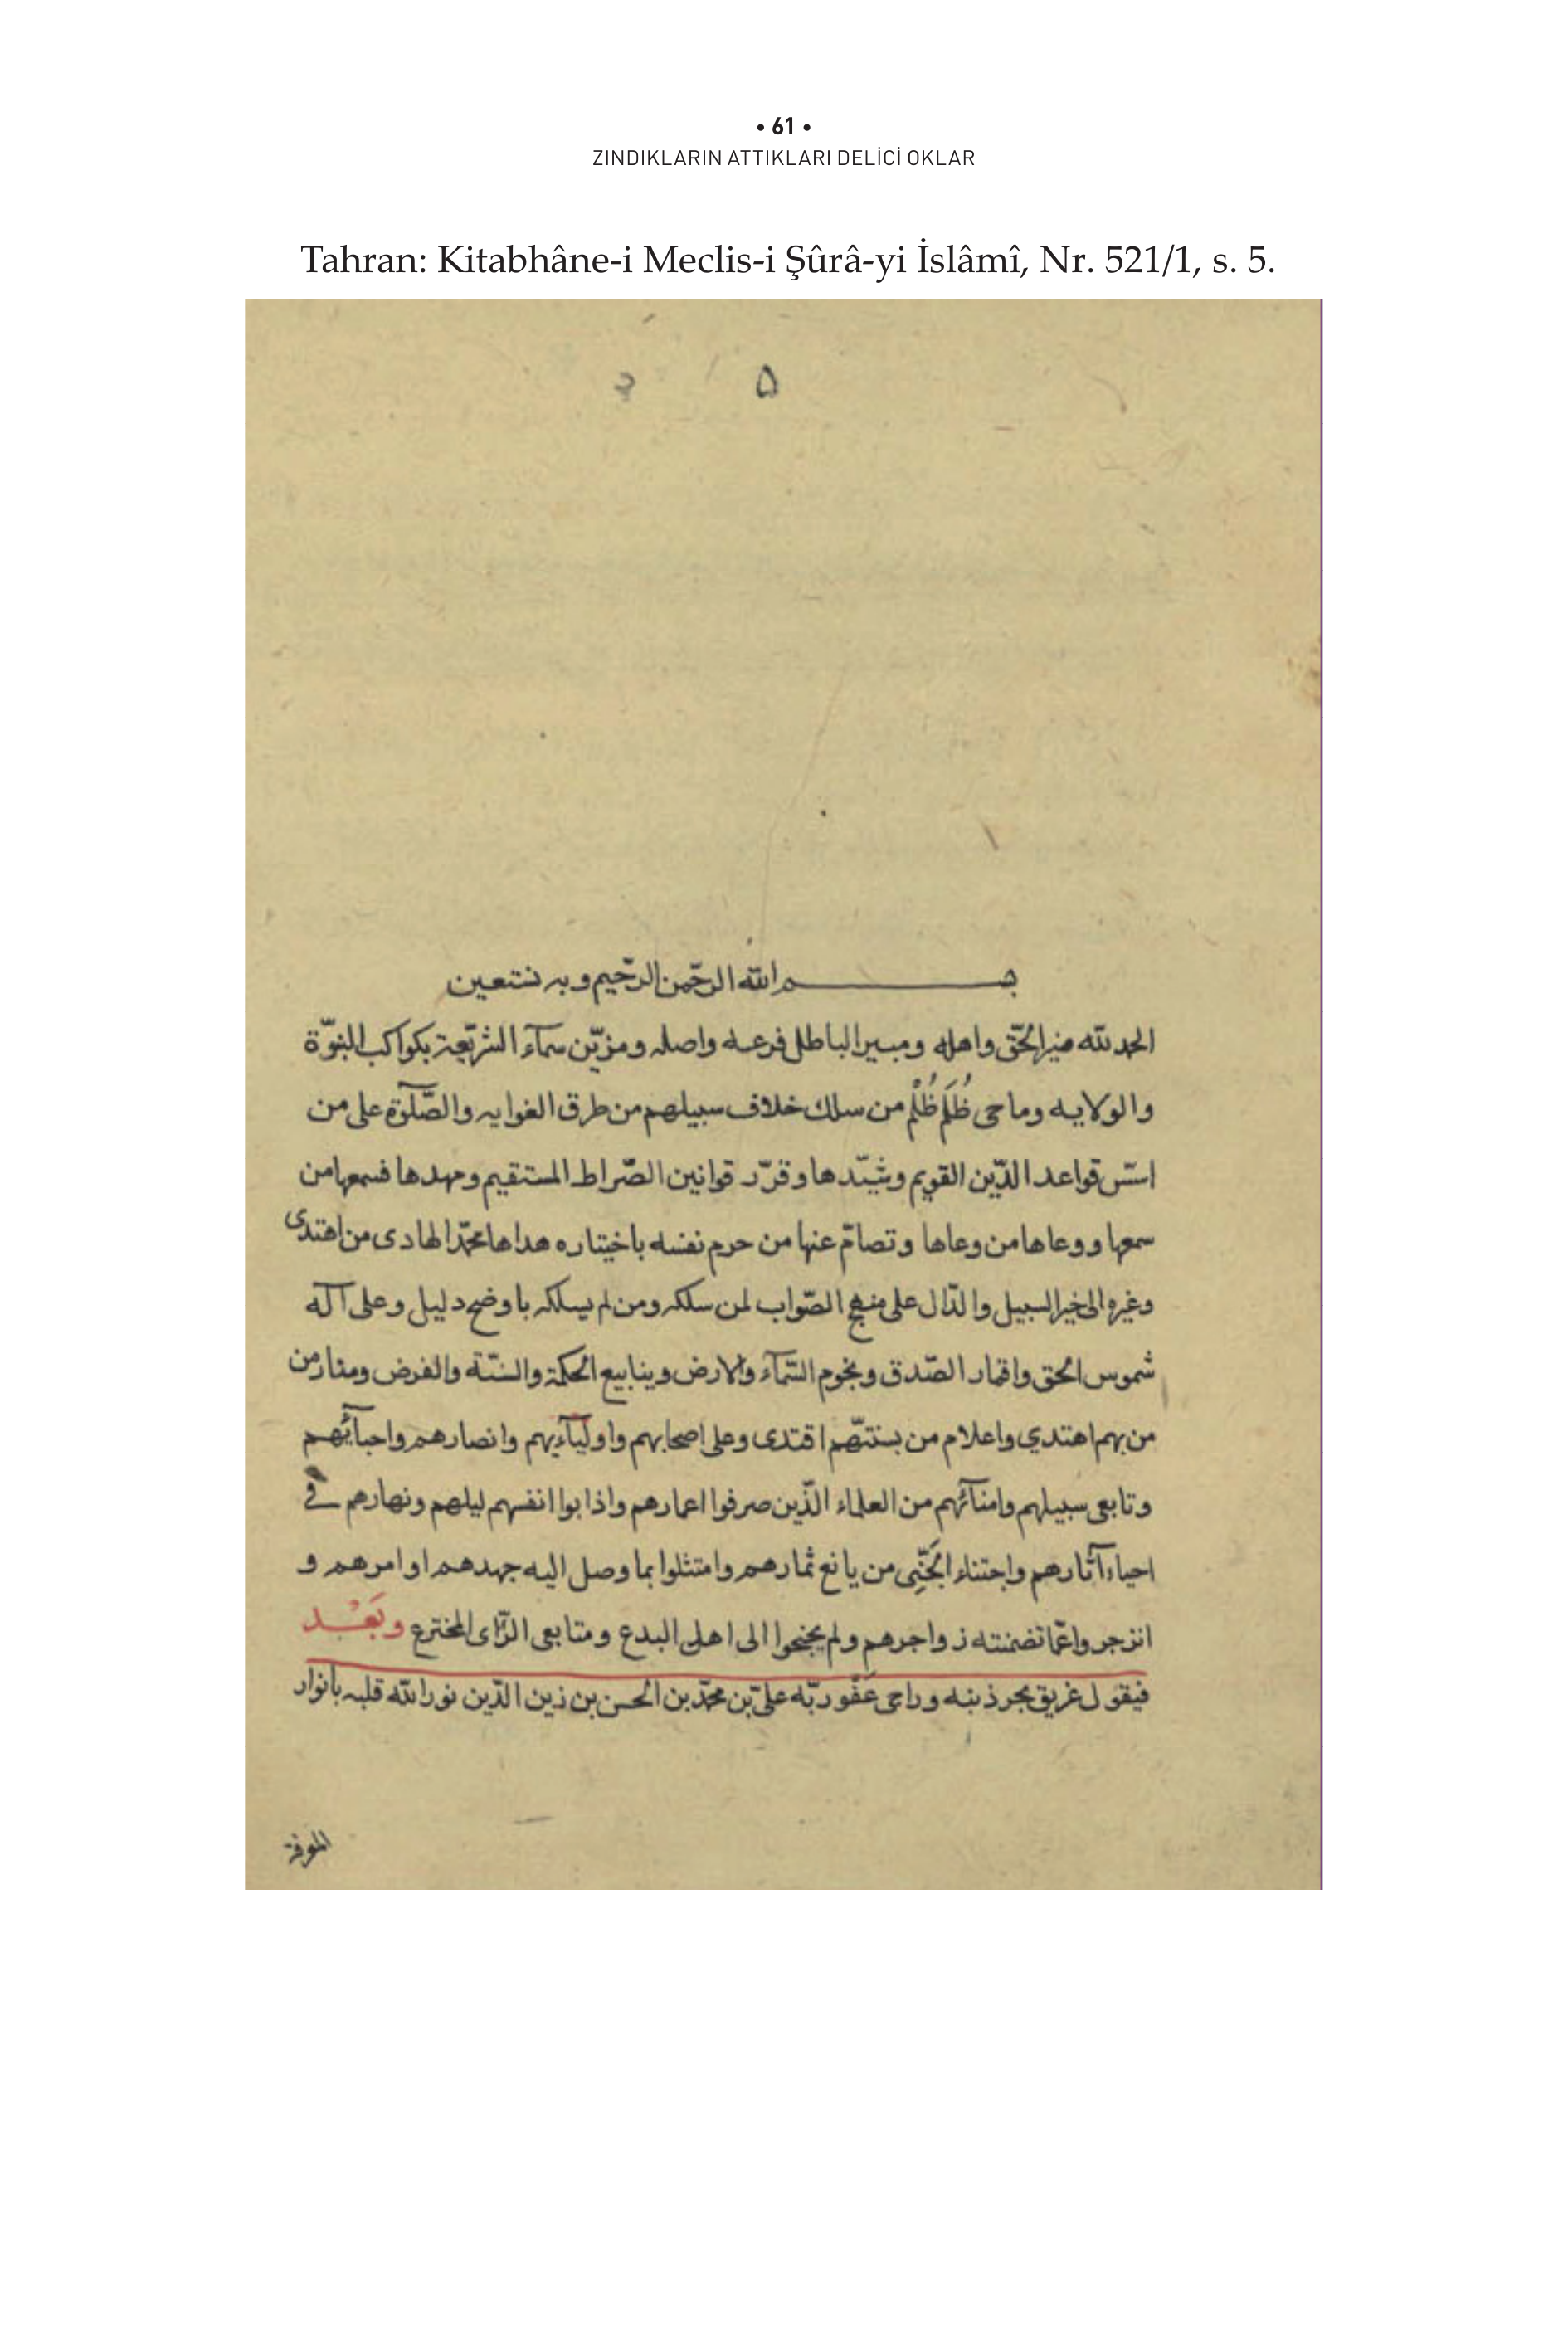 • 61 •
ZINDIKLARIN ATTIKLARI DELİCİ OKLAR
Tahran: Kitabhâne-i Meclis-i Şûrâ-yi İslâmî, Nr. 521/1, s. 5.
۵
بسم الله الرّحمن الرّحيم وبه نستعين
الحمد لله منير الحقّ واهله ومبير الباطل فرعه واصله ومزيّن سمآء الشريعة بكواكب النبوّة
والولايه وماحى ظُلَم ظُلْم من سلك خلاف سبيلهم من طرق الغوايه والصّلوٰة على من
اسّس قواعد الدّين القويم وشيّدها وقرّر قوانين الصّراط المستقيم ومهدها فسمعها من
سمعها ووعاها من وعاها وتصامّ عنها من حرم نفسه باختياره هداها محمّد الهادى من اهتدى
وغيره الى خير السبيل والدّال على منهج الصّواب لمن سلكه ومن لم يسلكه باوضح دليل وعلى آله
شموس الحق واقمار الصّدق ونجوم السّمآء والارض وينابيع الحكمة والسّنّة والفرض ومنار من
من بهم اهتدي واعلام من بسنتهّم اقتدى وعلى اصحابهم واوليآءِيهم وانصارهم واحبآئهم
وتابعى سبيلهم وامنآئهم من العلماء الّذين صرفوا اعمارهم واذابوا انفسهم ليلهم ونهارهم فى
احياء آثارهم واجتناء الجَنِّى من يانع ثمارهم وامتثلوا بما وصل اليه جهدهم اوامرهم و
انزجروا عمّا تضمنته زواجرهم ولم يجنحوا الى اهل البدع ومتابعى الرّاى المخترع وبَعْد
فيقول غريق بحر ذنبه وراجى عَفْو ربّه علىّ بن محمّد بن الحسن بن زين الدّين نور الله قلبه بأنوار